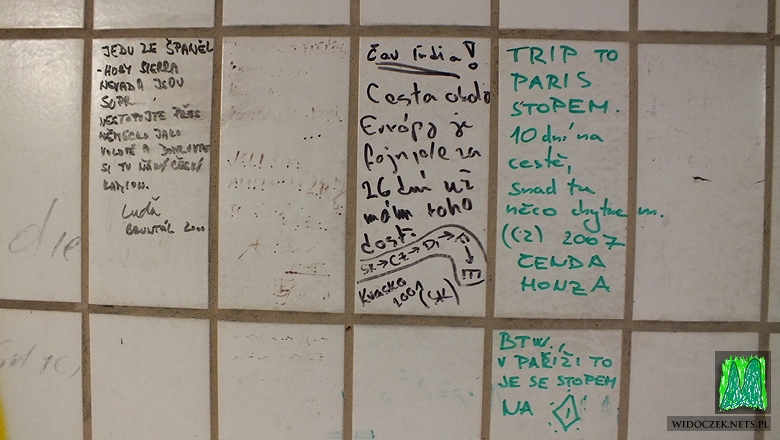 JEDU ZE ŠPANĚL
-HORY SIERRA
NEVADA JSOU
SUPR.
NESTOPUJTE PŘES
NĚMECKO JAKO
VOLOTĚ A DOMLUVTE
SI TU ŇÁKÝ ČESKÝ
KAMION.
Luďa
BRUNTÁL 2000
die
Čav ľudia!
Cesta okolo
Európy je
fajn, ale za
26 dní už
mám toho
dosť
SK→CZ→D→F→E
Kvasko
2001 (SK)
TRIP TO
PARIS
STOPEM.
10 dní na
cestě,
snad tu
něco chytnem.
(CZ) 2007
ČENDA
HONZA
BTW.,
V PAŘÍŽI TO
JE SE STOPEM
NA 1
WIDOCZEK.NETS.PL